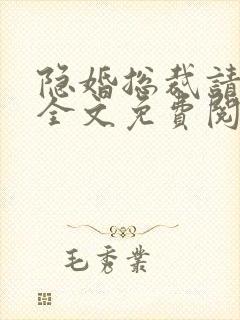 隐婚总裁請
全文免費閱
毛秀業